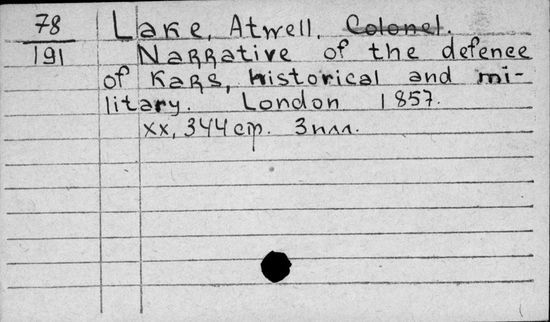 78
191
Lake, Atwell, Colonel.
Narrative of the defence
of Kars, historical and mi-
litary. London 1857.
xx, 344 стр. 3 илл.